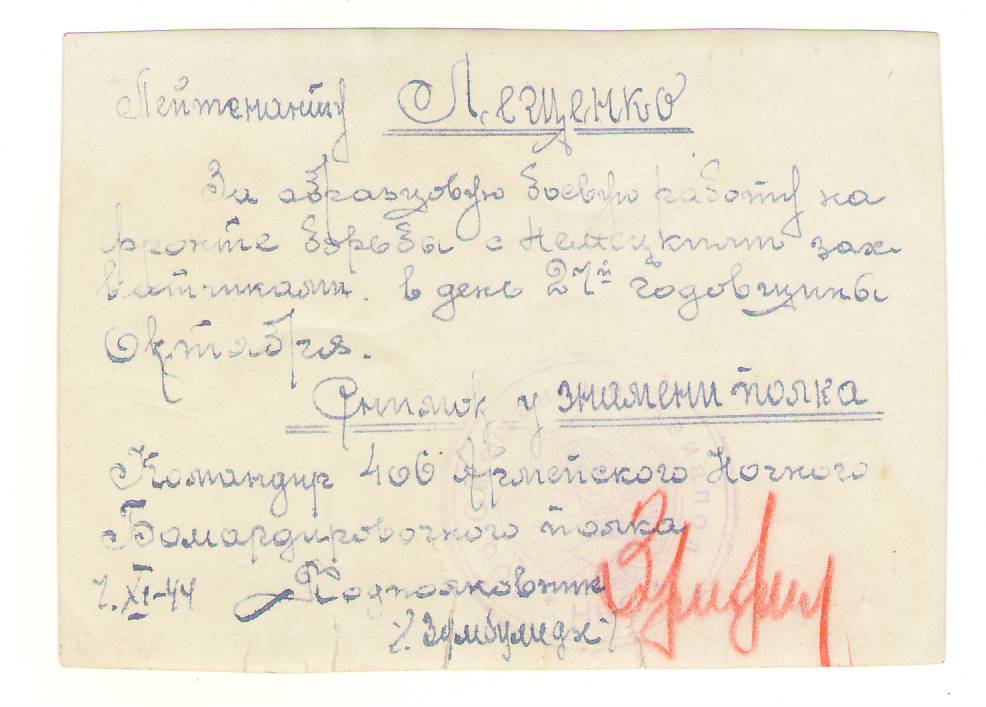 Лейтенанту Лещенко
За образцовую боевую работу на
фронте борьбы с Немецкими зах-
ватчиками. в день 27й годовщины
Октября.
Снимок у знамени полка
Командир 406 Армейского Ночного
Бомардировочного полка
7.XI-44 Подполковник
/Зумбулидзе/